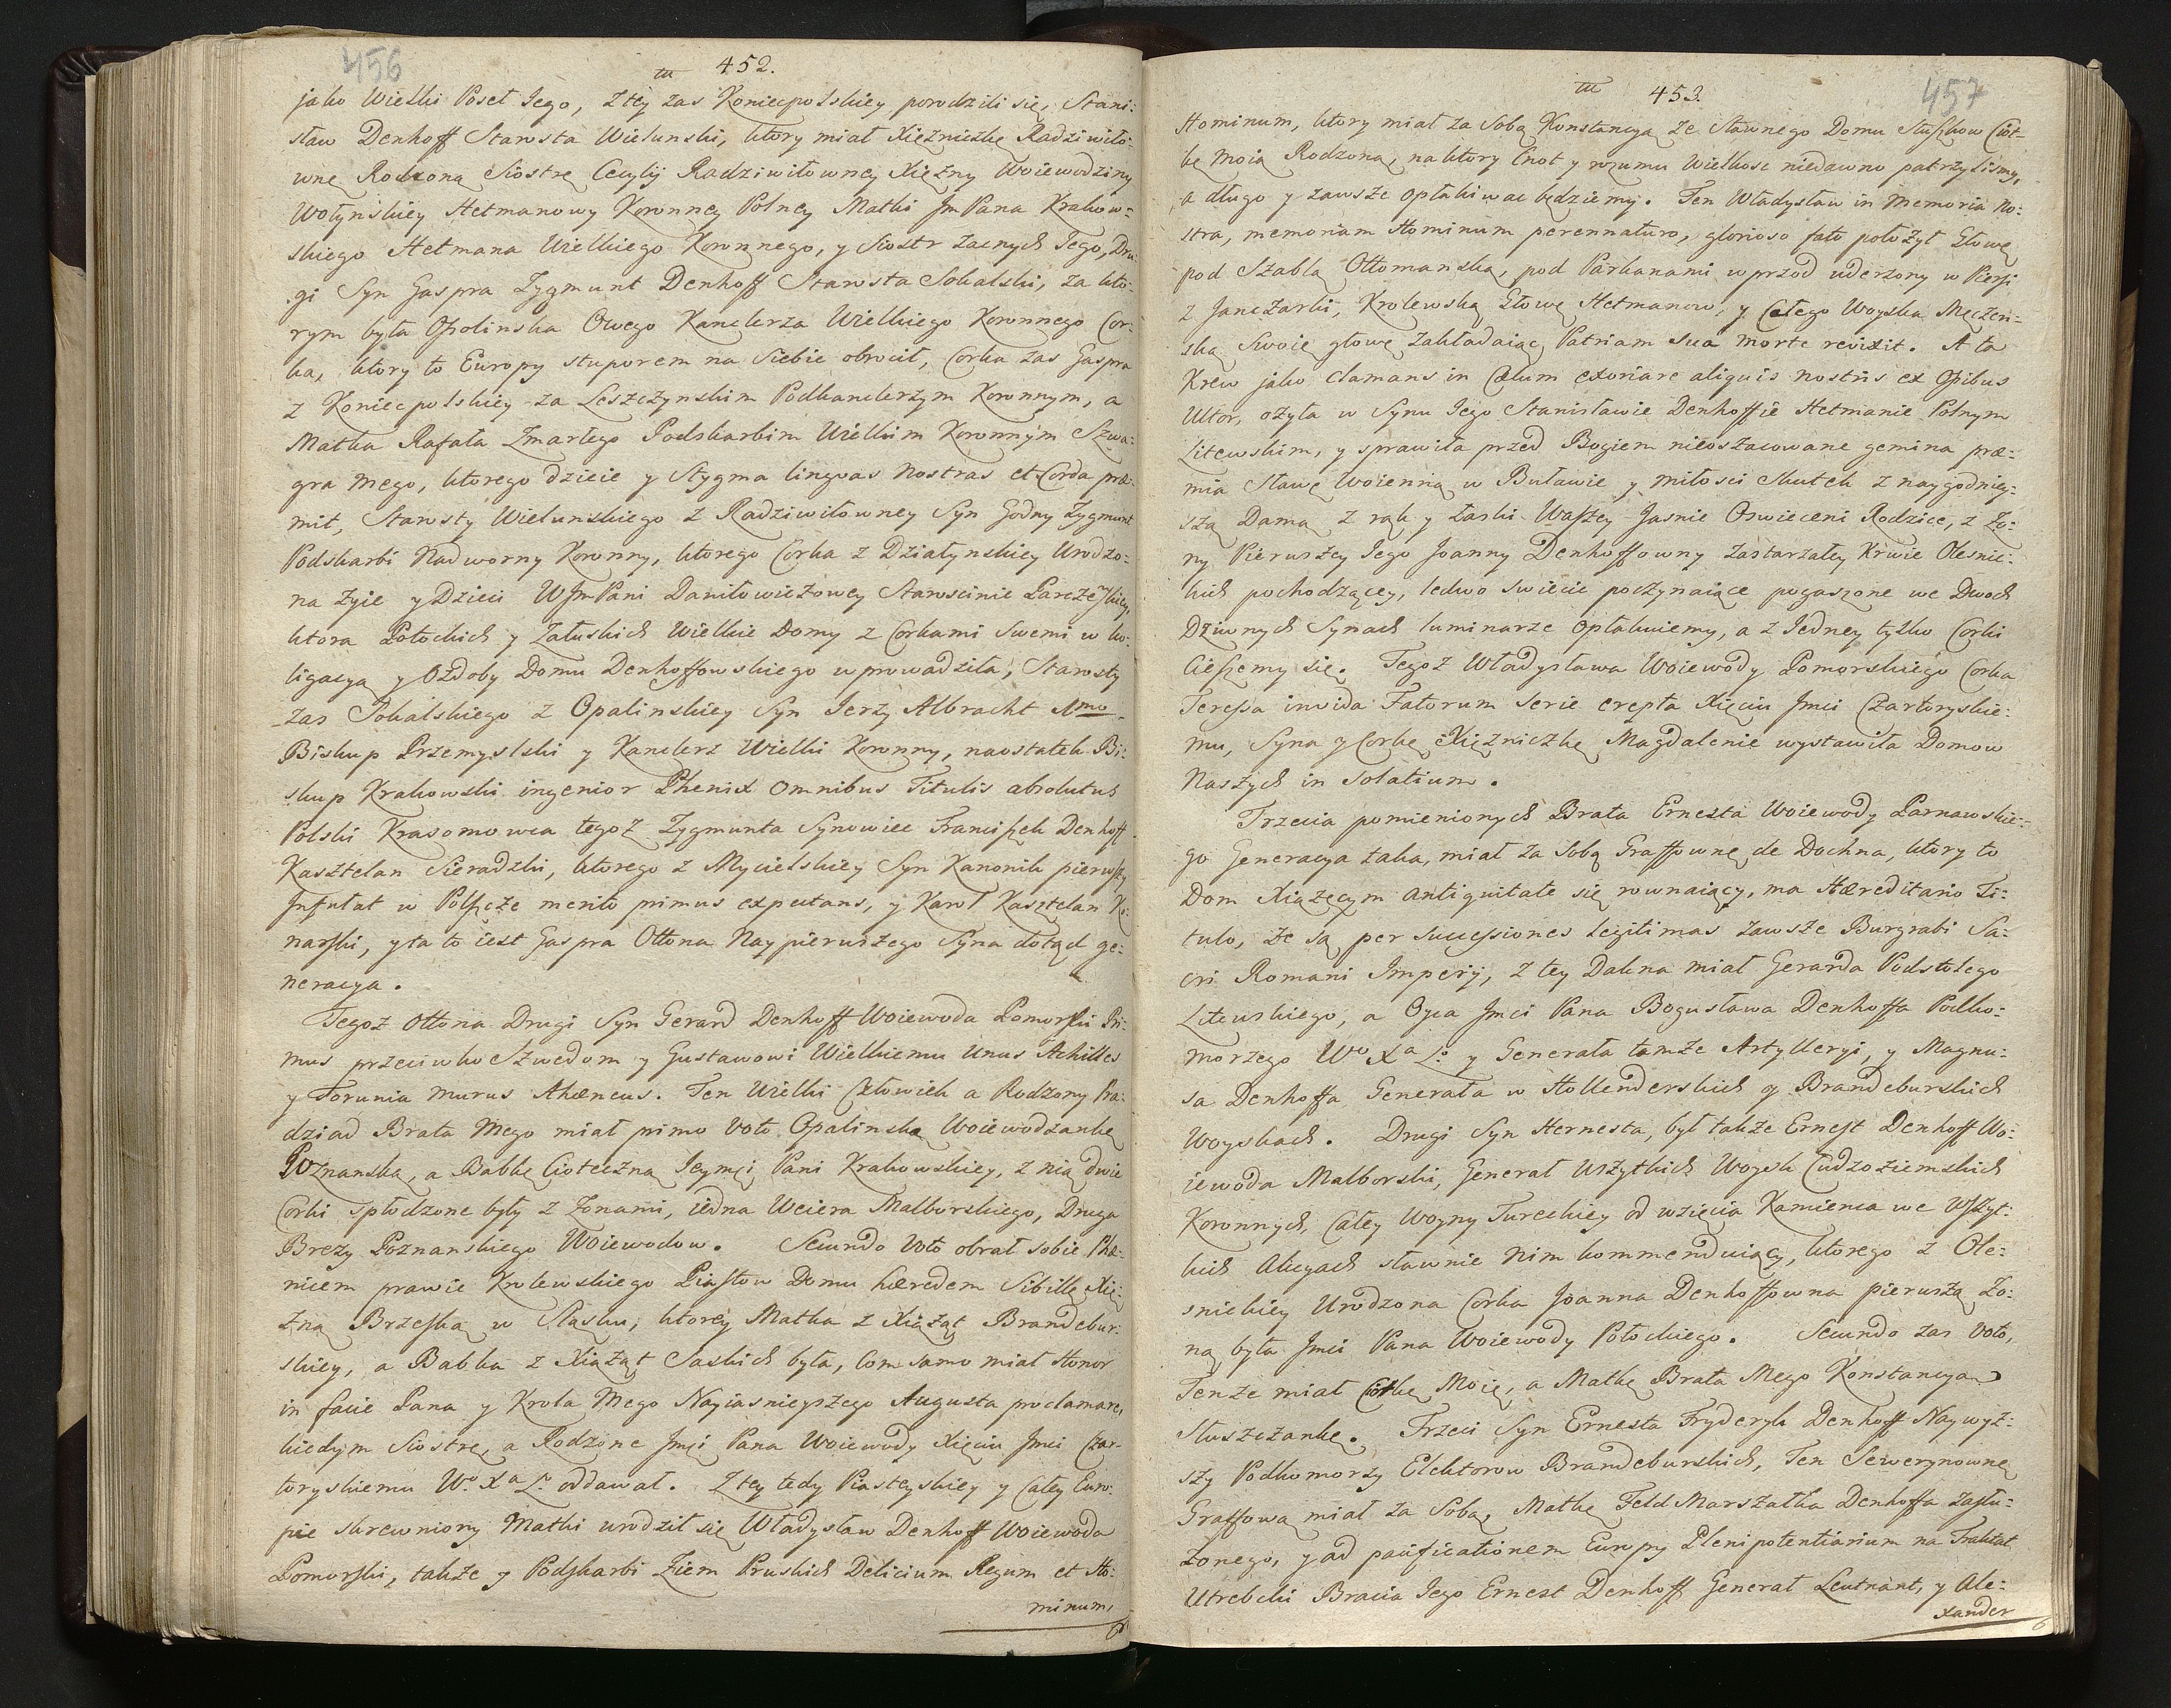 456
tu 452.
jako Wielki Poseł Jego, z tey zas Koniecpolskiey porodzili się, Stani:
sław Denhoff Starosta Wielunski, ktory miał Xięzniczkę Radziwiło:
wnę Rodzoną Siostrę Cecylij Radziwiłowney Xięzny Woiewodziny
Wołynskiey Hetmanowy Koronney Polney Matki JmPana Krakow:
skiego Hetmana Wielkiego Koronnego, y Siostr zacnych Jego, Dru:
gi Syn Gaspra Zygmunt Denhoff Starosta Sokalski, za kto:
rym była Opolinska Owego Kanclerza Wielkiego Koronnego Cor:
ka, ktory to Europy stuporem na Siebie obrocił, Corka zas Gaspra
z Koniecpolskiey za Leszczynskim Podkanclerzym Koronnym, a
Matka Rafała Zmarłego Podskarbim Wielkim Koronnym Szwa:
gra mego, ktorego dzieie y Stygma lingvas nostras et Corda pre:
mit, Starosty Wielunskiego z Radziwiłowney Syn Godny Zygmunt
Podskarbi Nadworny Koronny, ktorego Corka z Działynskiey Urodzo:
na zyie y Dzieci WJmPani Daniłowiczowey Starościnie Parczewskiey
ktora Potockich y Załuskich Wielkie Domy z Corkami Swemi w ko:
ligacyą y Ozdoby Domu Denhoffowskiego wprowadziła, Starosty
zas Sokalskiego z Opalinskiey Syn Jerzy Albracht Nmo
Biskup Przemyslski y Kanclerz Wielki Koronny, naostatek Bi:
skup Krakowski ingenior Phenix omnibus Titulis absolutus
Polski Krasomowca tegoz Zygmunta Synowiec Franciszek Denhoff
Kasztelan Sieradzki, ktorego z Mycielskiey Syn Kanonik pierwszy
Infułat w Polszcze merito primus expectans, y Karol Kasztelan Ko:
narski, y ta to iest Gaspra Ottona Naypierwszego Syna dotąd ge:
neracya.
Tegoz Ottona Drugi Syn Gerard Denhoff Woiewoda Pomorski Pri:
mus przeciwko Szwedom y Gustawowi Wielkiemu Unus Achilles
y Torunia murus Ahæneus. Ten Wielki Człowiek a Rodzony Pra:
dziad Brata Mego miał primo Voto Opalinską Woiewodzankę
Poznanską, a Babkę Cioteczną Jeymci Pani Krakowskiey, z nią dwie
Corki spłodzone były z Zonami, iedna Weiera Malborskiego, Druga
Brezy Poznanskiego Woiewodow. Secundo Voto obrał sobie Phæ:
nicem prawie Krolewskiego Piastow Domu hæredem Sibillę Xię:
zną Brzeską w Sląsku, ktorey Matka z Xiążąt Brandebur:
skiey, a Babka z Xiążąt Saskich była, Com samo miał Honor
in facie Pana y Krola Mego Nayiasnieyszego Augusta proclamare,
kiedym Siostrę, a Rodzone Jmci Pana Woiewody Xięciu Jmci Czar:
toryskiemu Wo Xa Lo oddawał. Z tey tedy Piasteyskiey y Całey Euro:
pie skrewnioney Matki urodził się Władysław Denhoff Woiewoda
Pomorski, takze y Podskarbi Ziem Pruskich Delicium Regum et Ho:
minum,
457
tu 453.
Hominum, ktory miał za Sobą Konstancyą ze Sławnego Domu Słuszkow Ciot:
kę moią Rodzoną, na ktory Cnot y rozumu Wielkosc niedawno patrzylismy,
a długo y zawsze opłakiwac będziemy. Ten Władysław in memoria no:
stra, memoriam Hominum perennaturo, glorioso fato położył Głowę
pod Szablą Ottomanską, pod Parkanami wprzod uderzony w Piersi
z Janczarki, Krolewską Głowę Hetmanow, y Całego Woyska Męczen:
ską Swoię głowę zakładaiąc Patriam Sua morte revixit. A ta
Krew jako clamans in Cælum exoriare aliquis nostris ex Ossibus
Ultor, ozyła w Synu Jego Stanisławie Denhoffie Hetmanie Polnym
Litewskim, y sprawiła przed Bogiem nieoszacowane gemina præ:
mia Sławę Woienną w Buławie y miłosci Skutek z naygodniey:
szą Damą z rąk y Łaski Waszey Jasnie Oswieceni Rodzice, z Zo:
ny Pierwszey Jego Joanny Denhoffowny zastarzałey Krwie Olesnic:
kich pochodzącey, ledwo swiecie poczynaiące pogaszone we Dwoch
Dziwnych Synach luminarze opłakuiemy, a z Jedney tylko Corki
Cieszemy się. Tegoz Władysława Woiewody Pomorskiego Corka
Teressa invida Fatorum serie erepta Xięciu Jmci Czartoryskie:
mu, Syna y Corkę Xięzniczkę Magdalenie wystawiła Domow
Naszych in Solatium.
Trzecia pomienionych Brata Ernesta Woiewody Parnawskie:
go Generacya taka, miał za Sobą Graffownę de Dochna, ktory to
Dom Xiązęcym antiquitate się rownaiący, ma Hæreditario Ti:
tulo, ze są per Successiones legitimas zawsze Burgrabi Sa:
cri Romani Imperij, z tey Dahna miał Gerarda Podstolego
Litewskiego, a Oyca Jmci Pana Bogusława Denhoffa Podko:
morzego Wo Xa Lo y Generała tamze Artylleryi, y Magnu:
sa Denhoffa Generała w Hollenderskich y Brandeburskich
Woyskach. Drugi Syn Hernesta, był takze Ernest Denhoff Wo:
iewoda Malborski, Generał wszytkich Woysk Cudzoziemskich
Koronnych, Całey Woyny Tureckiey od wzięcia Kamienca we wszyt:
kich Akcyach sławnie nim kommenduiący, ktorego z Ole:
snickiey Urodzona Corka Joanna Denhoffowna pierwszą Zo:
ną była Jmci Pana Woiewody Połockiego. Secundo zas Voto,
Tenze miał Ciotkę Moię, a Matkę Brata Mego Konstancyą
Słuszczankę. Trzeci Syn Ernesta Fryderyk Denhoff Naywyz:
szy Podkomorzy Elektorow Brandeburskich, Ten Sewerynownę
Graffową miał za Sobą, Matkę Feld Marszałka Denhoffa zasłu:
zonego, y ad pacificationem Europy Plenipotentiarium na Traktat
Utrebcki Bracia Jego Ernest Denhoff Generał Leutnant, y Ale:
xander